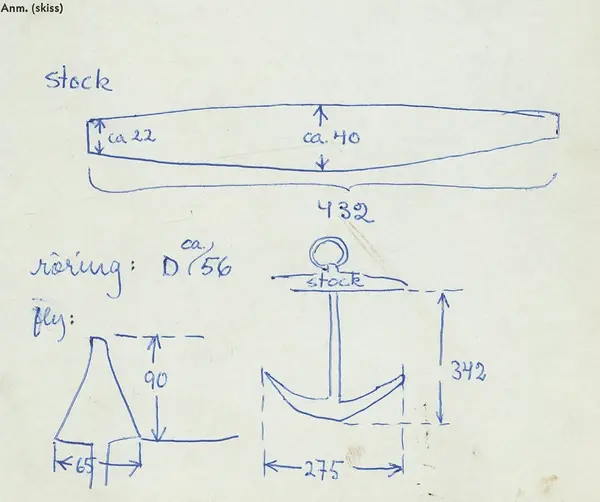 Anm. (skiss)
stock
ca 22
ca. 40
432
röring: D ca. 56
stock
fly:
90
342
65
275